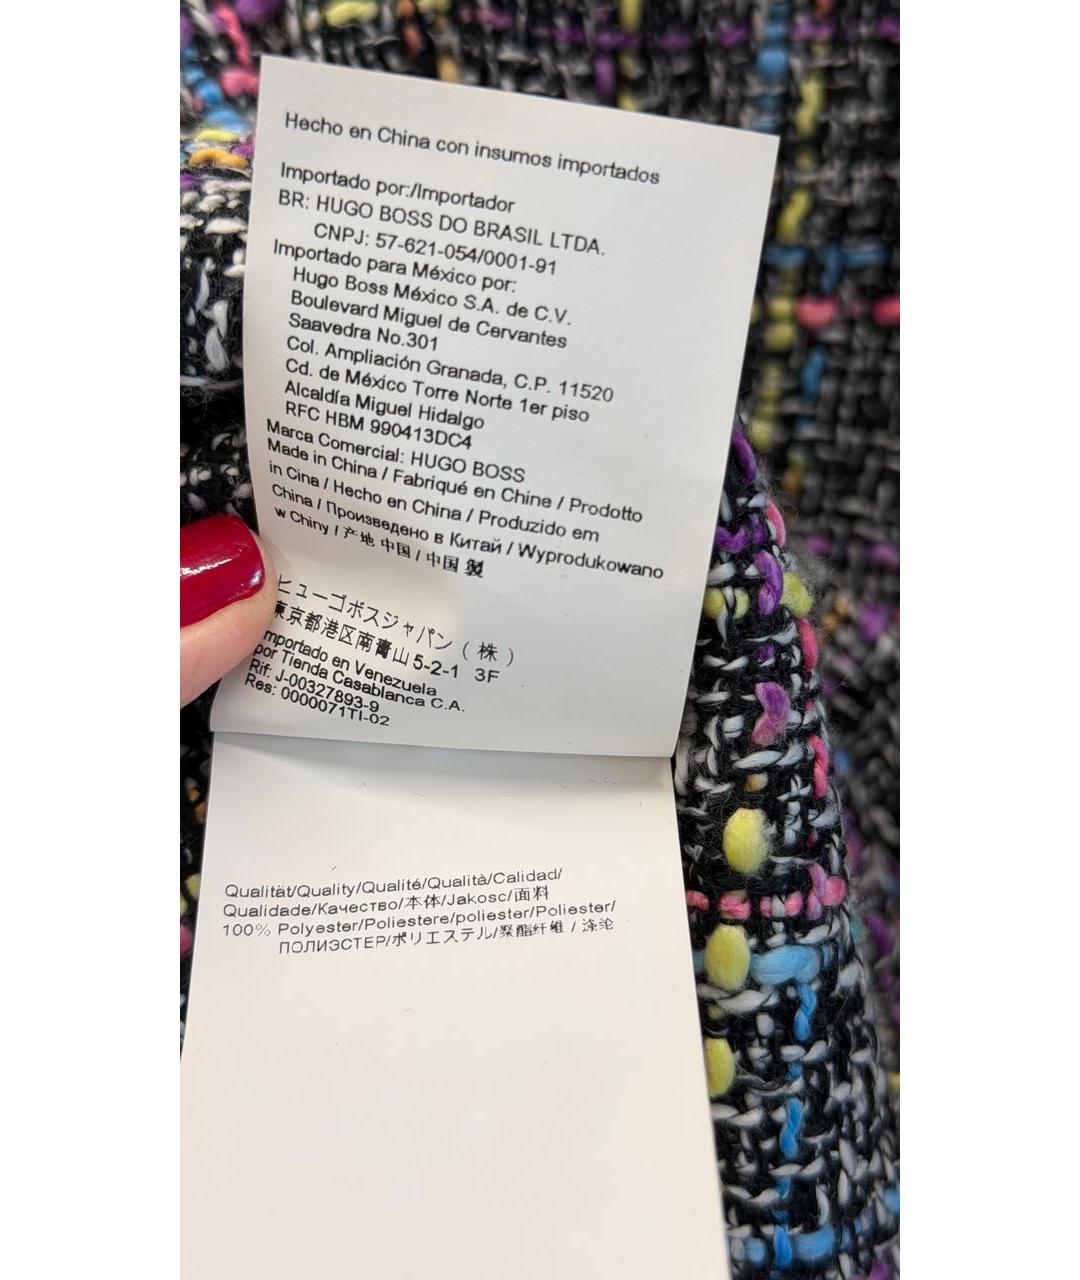 Hecho en China con insumos importados
Importado por:/Importador
BR: HUGO BOSS DO BRASIL LTDA.
CNPJ: 57-621-054/0001-91
Importado para México por:
Hugo Boss México S.A. de C.V.
Boulevard Miguel de Cervantes
Saavedra No.301
Col. Ampliación Granada, C.P. 11520
Cd. de México Torre Norte 1er piso
Alcaldía Miguel Hidalgo
RFC HBM 990413DC4
Marca Comercial: HUGO BOSS
Made in China / Fabriqué en Chine / Prodotto
in Cina / Hecho en China / Produzido em
China / Произведено в Китай / Wyprodukowano
w Chiny / 产地 中国 / 中国 製
ヒューゴボスジャパン ( 株 )
東京都港区南青山 5-2-1 3F
mportado en Venezuela
por Tienda Casablanca C.A.
Rif: J-00327893-9
Res: 0000071TI-02
Qualität/Quality/Qualité/Qualità/Calidad/
Qualidade/Качество/本体/Jakosc/面料
100% Polyester/Poliestere/poliester/Poliester/
ПОЛИЭСТЕР/ポリエステル/聚酯纤维 / 涤纶